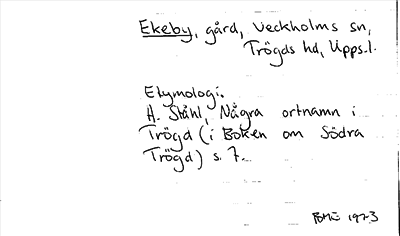 Ekeby, gård, Veckholms sn,
Trögds hd, Upps.l.
Etymologi.
H. Ståhl, Några ortnamn i
Trögd (i Boken om Södra
Trögd) s. 7.
BMÜ 1973